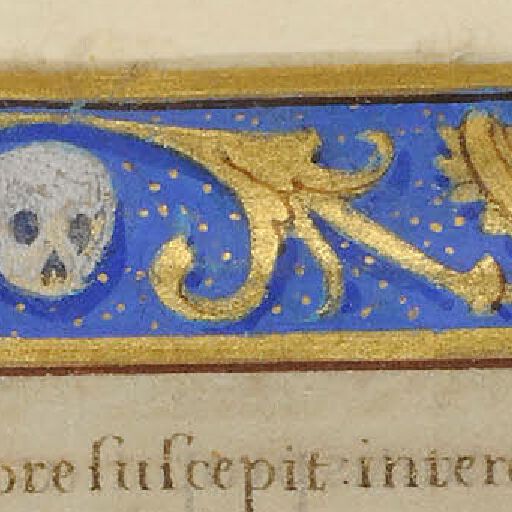 ore ſuſcepit: inter